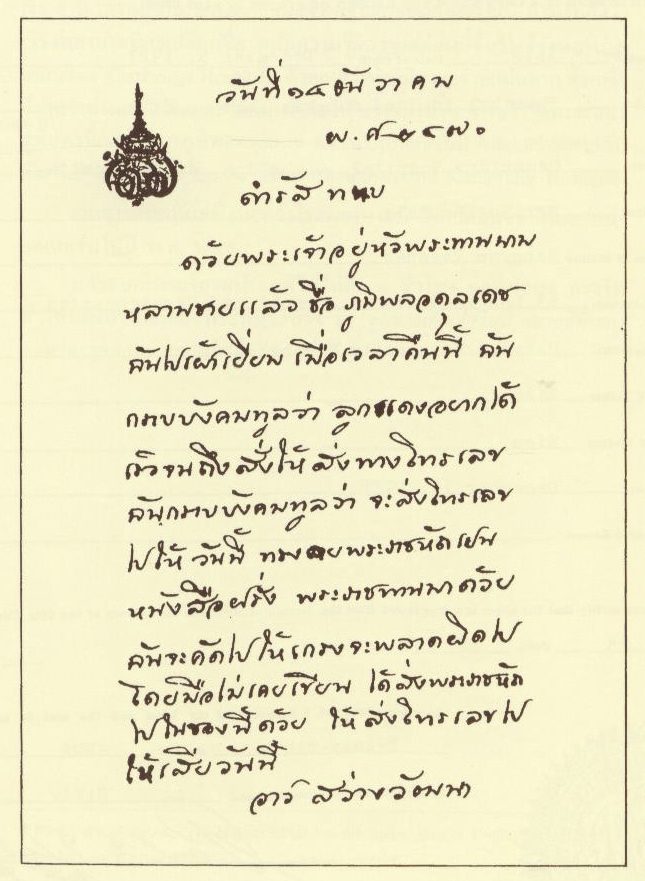 วันที่ ๑๔ ธันวาคม
พ.ศ ๒๔๗๐
ดำรัส ทราบ
ด้วยพระเจ้าอยู่หัวพระทานนาม
หลานชายแล้ว ชื่อ ภูมิพลอดุลเดช
ฉันไปเฝ้าเยี่ยม เมื่อเวลาคืนนี้ ฉัน
กราบบังคมทูลว่า ลูกแดงอยากได้
เร็วจนถึงสั่งให้ส่งทางโทรเลข
ฉันกราบบังคมทูลว่า จะส่งโทรเลข
ไปให้ วันนี้ ทรงพระราชหัถเปน
หนังสือฝรั่ง พระราชทานมาด้วย
ฉันจะคัดไปให้เกรงจะพลาดผิดไป
โดยมือไม่เคยเขียน ได้ส่งพระราชหัถ
ไปในซองนี้ด้วย ให้ส่งโทรเลขไป
ให้เสียวันนี้
สว่างวัฒนา